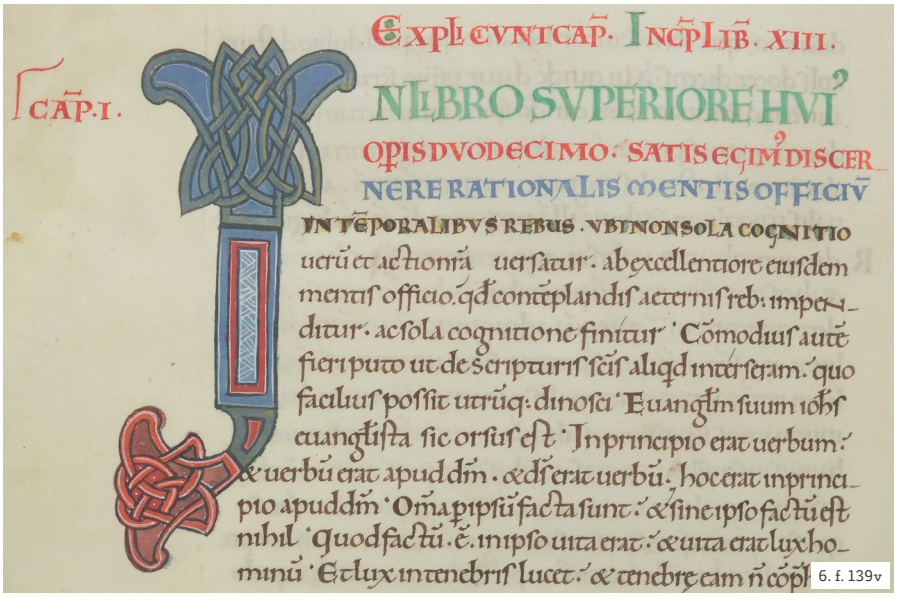 EXPLICVNT CAP̄. INCP̄ LIB̄. XIII.
CAP̄.I.
N LIBRO SVPERIORE HVIꝰ
OP̱IS DVODECIMO· SATIS EGIMꝰ DISCER
NERE RATIONALIS MENTIS OFFICIV̄
IN TĒPORALIBVS REBUS· VBI NON SOLA COGNITIO
uerū et actio nr̄a uersatur· ab excellentiore eiusdem
mentis officio. qd̄ contēplandis aeternis reb: impen-
ditur· ac sola cognitione finitur· Cōmodius autē
fieri puto ut de scripturis sc̄is aliqd interseram. quo
facilius possit utrūq: dinosci· Euangl̄m suum ioh̄s
euangl̄ista sic orsus est· In principio erat uerbum:
& uerbū erat apud dm̄· & ds̄ erat uerbū: hoc erat in princi-
pio apud dm̄· Om̄a ꝑ ipsū facta sunt: & sine ipso factū est
nihil· Quod factū· ē. in ipso uita erat: & uita erat lux ho-
minū· Et lux in tenebris lucet: & tenebrę eam n̄
6. f. 139v